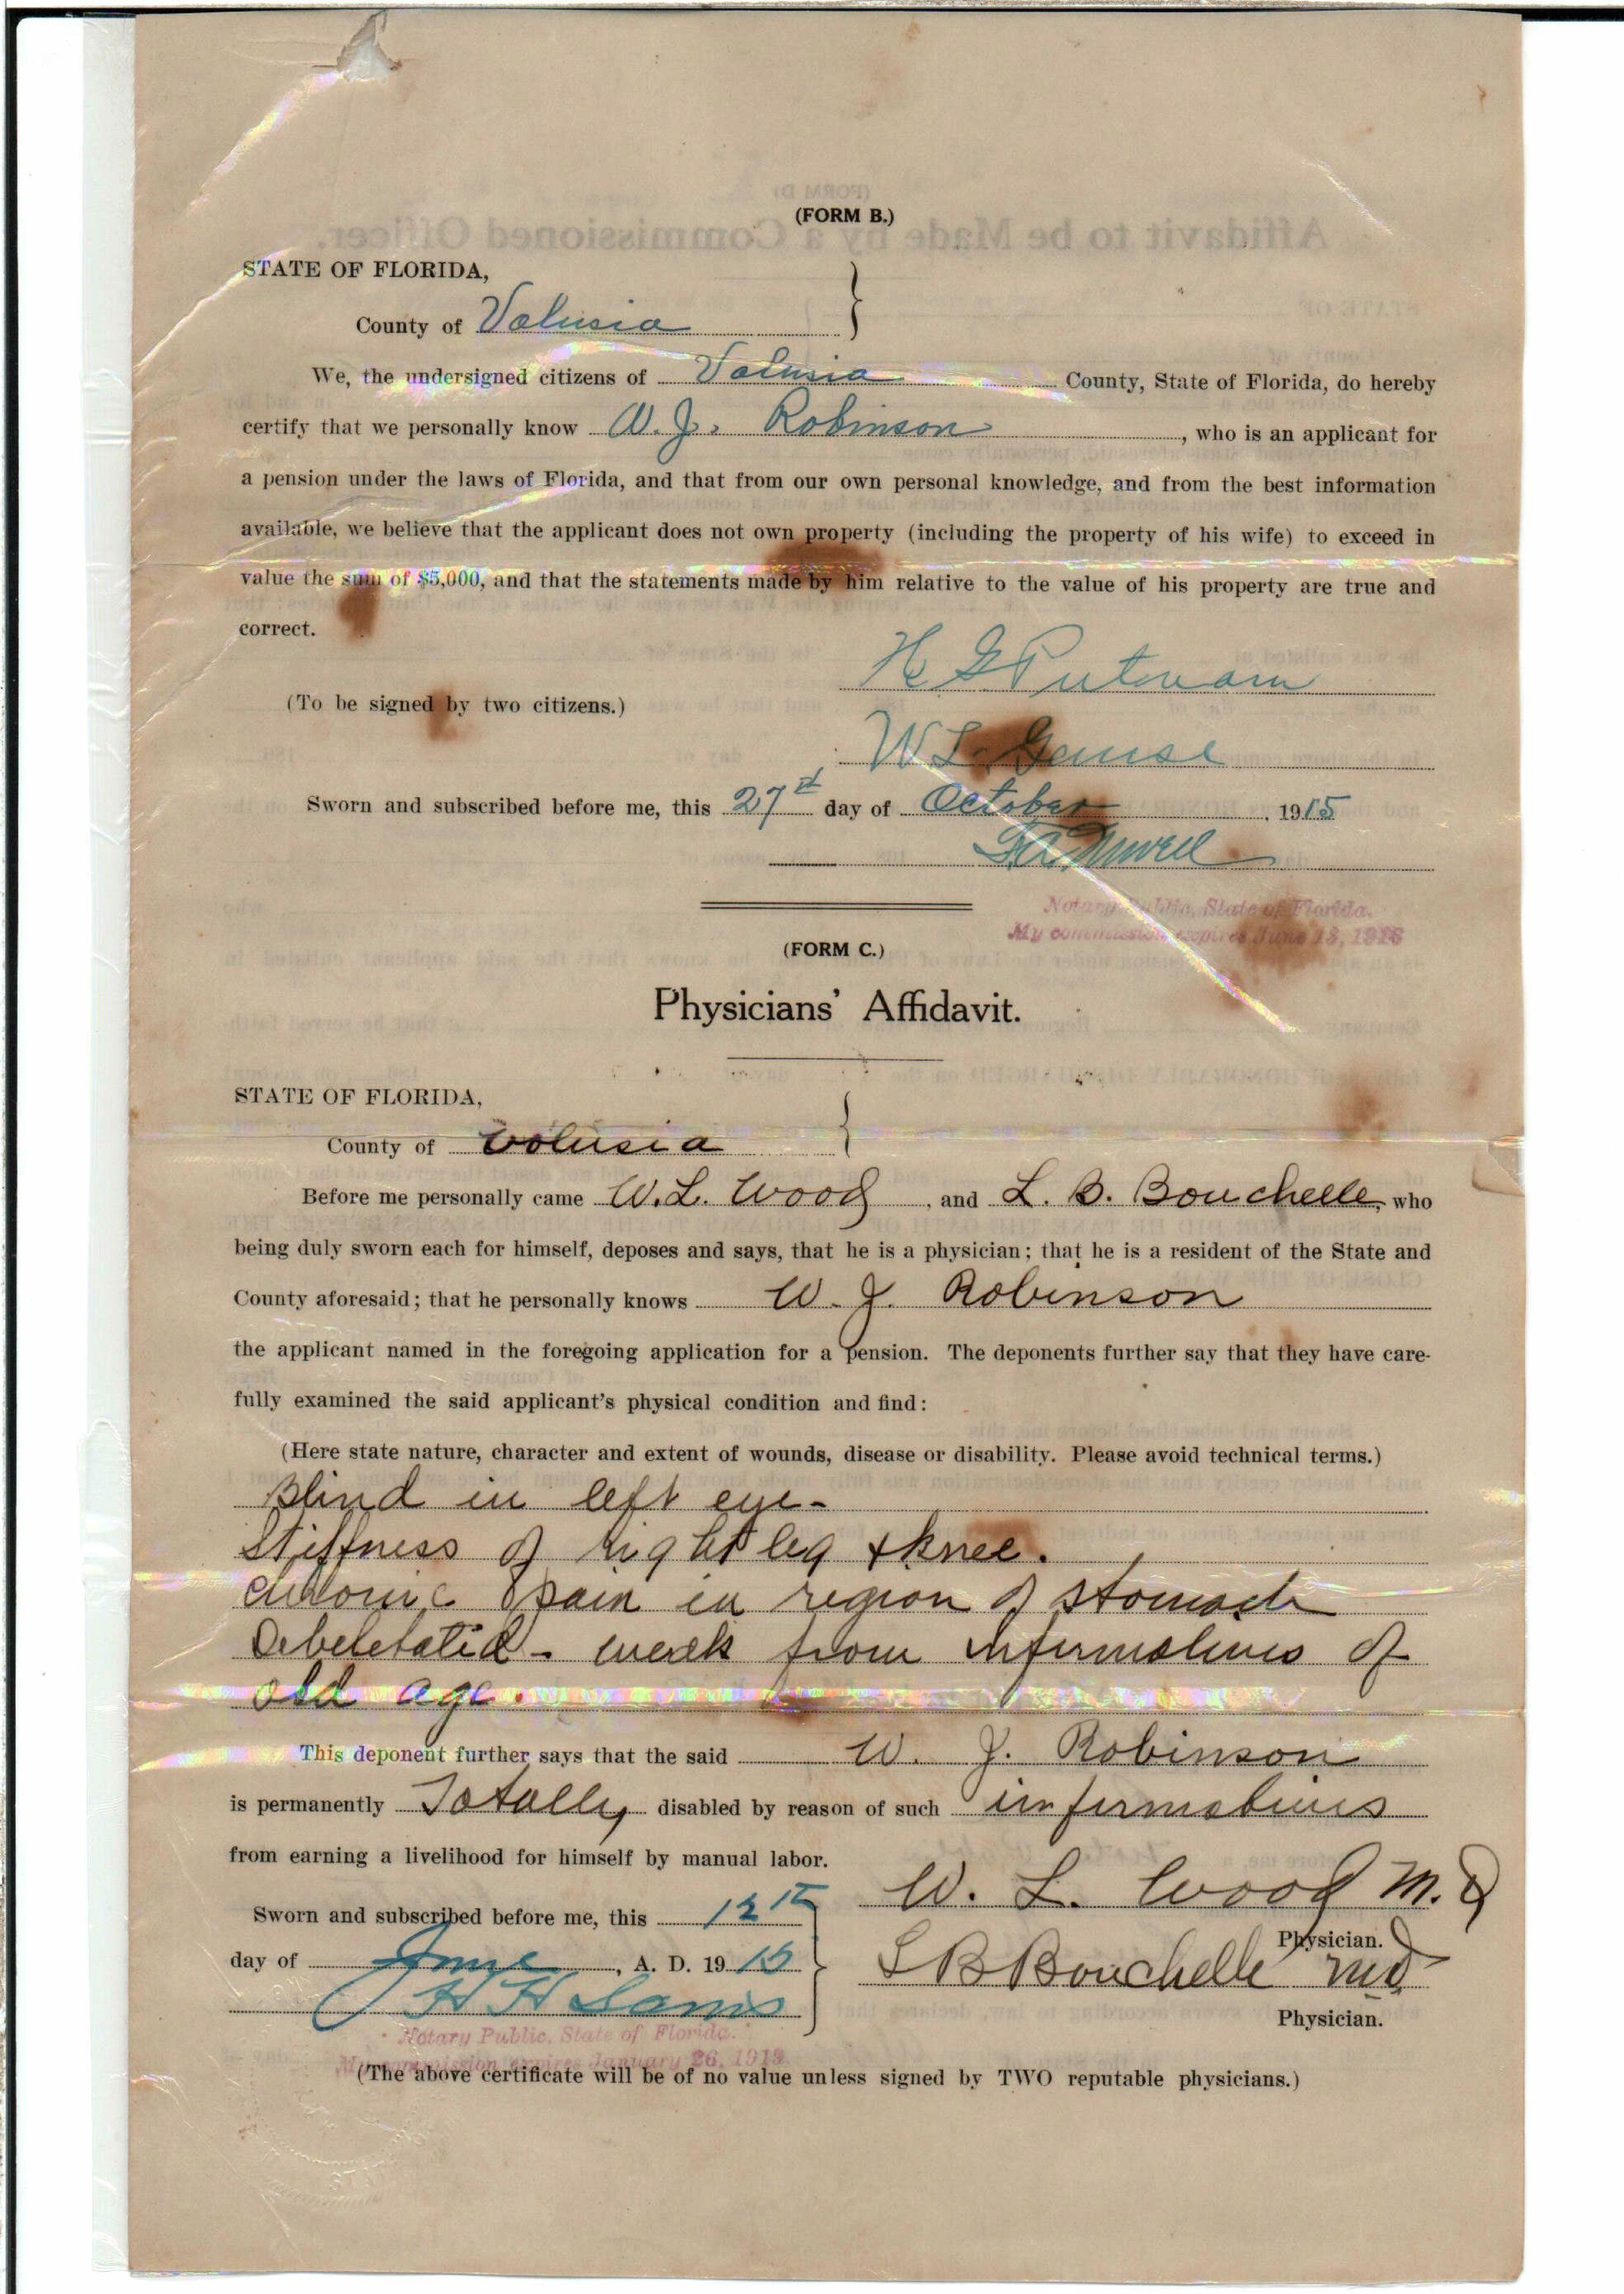 (FORM B.)
STATE OF FLORIDA,
County of Volusia
We, the undersigned citizens of Volusia County, State of Florida, do hereby
certify that we personally know W. J. Robinson, who is an applicant for
a pension under the laws of Florida, and that from our own personal knowledge, and from the best information
available, we believe that the applicant does not own property (including the property of his wife) to exceed in
value the sum of $5,000, and that the statements made by him relative to the value of his property are true and
correct.
H G Putnam
(To be signed by two citizens.)
W S. Gause
Sworn and subscribed before me, this 27th day of October, 1915
Notary Public, State of Florida.
My commission expires June 13, 1916
(FORM C.)
Physicians' Affidavit.
STATE OF FLORIDA,
County of Volusia
Before me personally came W. L. Wood, and L. B. Bouchelle, who
being duly sworn each for himself, deposes and says, that he is a physician; that he is a resident of the State and
County aforesaid; that he personally knows W. J. Robinson
the applicant named in the foregoing application for a pension. The deponents further say that they have care-
fully examined the said applicant's physical condition and find:
(Here state nature, character and extent of wounds, disease or disability. Please avoid technical terms.)
Blind in left eye-
Stiffness of right leg & knee.
chronic pain in region of stomach
Debeletated - weak from infirmatives of
old age.
This deponent further says that the said W. J. Robinson
is permanently Totally disabled by reason of such infirmatives
from earning a livelihood for himself by manual labor.
W. L. Wood M. D
Sworn and subscribed before me, this 12th
Physician.
day of June, A. D. 1915
L B Bouchelle MD
Physician.
Notary Public, State of Florida.
My commission expires January 26, 1919.
(The above certificate will be of no value unless signed by TWO reputable physicians.)